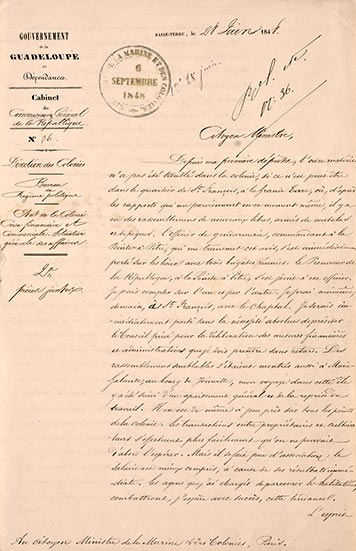 GOUVERNEMENT
de la
GUADELOUPE
et
Dépendances.
Cabinet
du
Commissaire Général
de la République
N° 36.
Direction des Colonies
Bureau
Régime politique
État de la Colonie
Crise financière et
Commerciale. Situation
générale des affaires
2a
pièces jointes
BASSE-TERRE, le 28 Juin 1848.
LA MARINE ET DES COLONIES
6
SEPTEMBRE
1848
28 juin.
36.
Citoyen Ministre,
Depuis ma première dépêche, l'ordre matériel
n'a pas été troublé dans la colonie, si ce n'est peut être
dans le quartier de St François, à la Grande Terre, où, d'après
des rapports qui me parviennent en ce moment même, il y a
eu des rassemblements de nouveaux libres armés de coutelas
et de piques. L'officier de gendarmerie, commandant à la
Pointe à Pitre, qui me transmet ces avis, s'est immédiatement
porté sur les lieux avec trois brigades réunies. Le Procureur de
la République, à la Pointe à Pitre, s'est joint à cet officier.
Je puis compter sur l'un et sur l'autre. Je serai moi-même
demain, à St François, avec le Chaptal. Je serais im-
médiatement parti sans la nécessité absolue de présider
le Conseil privé pour la délibération des mesures financières
et administratives que je dois prendre sans retard. Des
rassemblements semblables s'étaient montrés à Marie
Galante, au bourg de Joinville, mon voyage dans cette île
y a été suivi d'un apaisement général et de la reprise du
travail. Il en est de même à peu près sur tous les points
de la colonie. Les transactions entre propriétaires et cultiva-
teurs s'effectuent plus facilement qu'on ne pouvait
d'abord l'espérer. Mais il se fait peu d'associations; le
salaire est mieux compris, à cause de ses résultats immé-
diats. Les agents que j'ai chargés de parcourir les habitations
combattront, j'espère avec succès, cette tendance.
L'esprit
Au citoyen Ministre de la Marine & des Colonies, Paris.